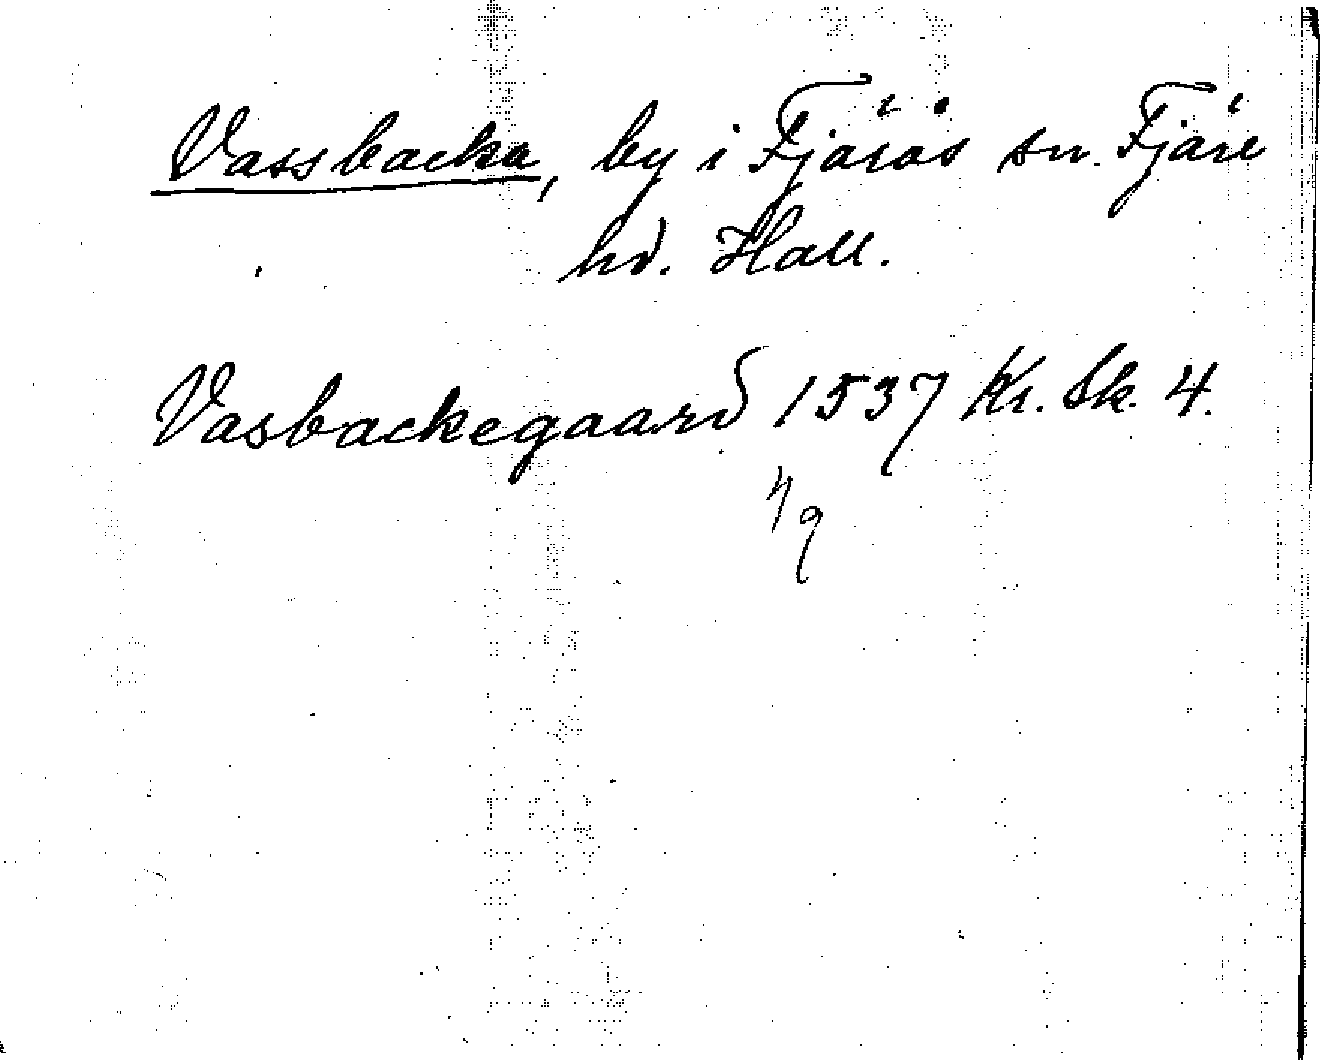 Vassbacka, by i Fjärås sn. Fjäre
hd. Hall.
Vasbackegaard 1537 Kr. Sk. 4.
4/9